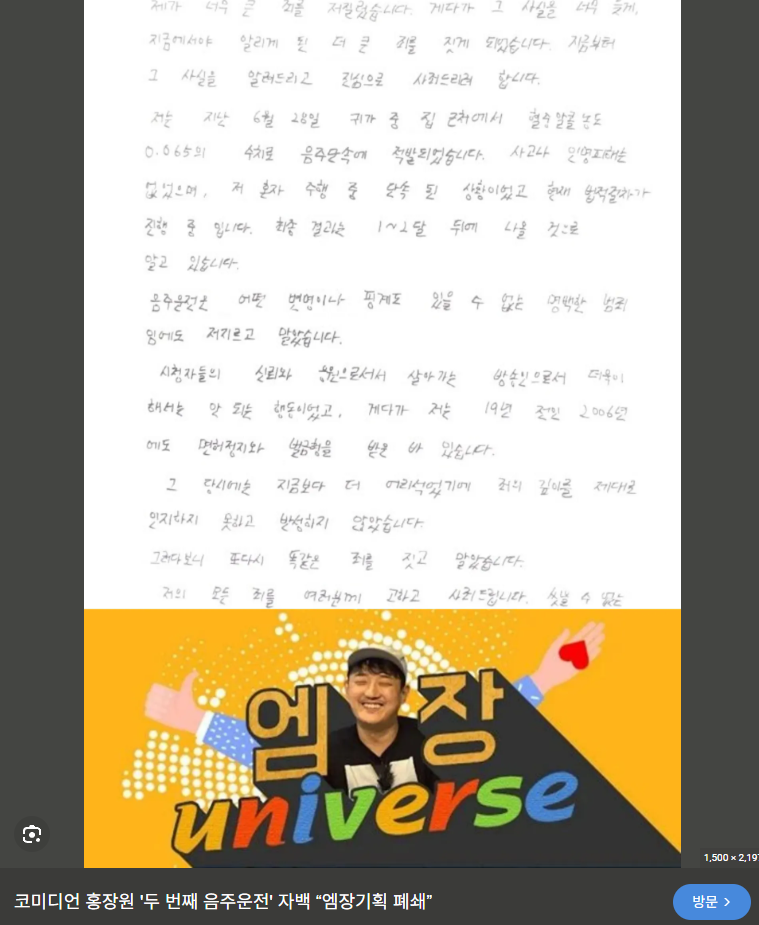 제가 너무 큰 죄를 저질렀습니다. 게다가 그 사실을 너무 늦게,
지금에서야 알리게 된 더 큰 죄를 짓게 되었습니다. 지금부터
그 사실을 알려드리고 진심으로 사죄드리려 합니다.
저는 지난 6월 28일 귀가 중 집 근처에서 혈중알콜농도
0.065의 수치로 음주단속에 적발되었습니다. 사고나 인명피해는
없었으며, 저 혼자 주행 중 단속 된 상황이었고 현재 법적절차가
진행 중 입니다. 최종 결과는 1~2달 뒤에 나올 것으로
알고 있습니다.
음주운전은 어떤 변명이나 핑계도 있을 수 없는 명백한 범죄
임에도 저지르고 말았습니다.
시청자들의 신뢰와 응원으로서서 살아가는 방송인으로서 더욱이
해서는 안 되는 행동이었고, 게다가 저는 19년 전인 2006년
에도 면허정지와 벌금형을 받은 바 있습니다.
그 당시에는 지금보다 더 어리석었기에 죄의 깊이를 제대로
인지하지 못하고 반성하지 않았습니다.
그러다보니 또다시 똑같은 죄를 짓고 말았습니다.
저의 모든 죄를 여러분께 고하고 사죄드립니다. 씻을 수 없는
엠장
universe
1,500 × 2,197
코미디언 홍장원 '두 번째 음주운전' 자백 “엠장기획 폐쇄”
방문